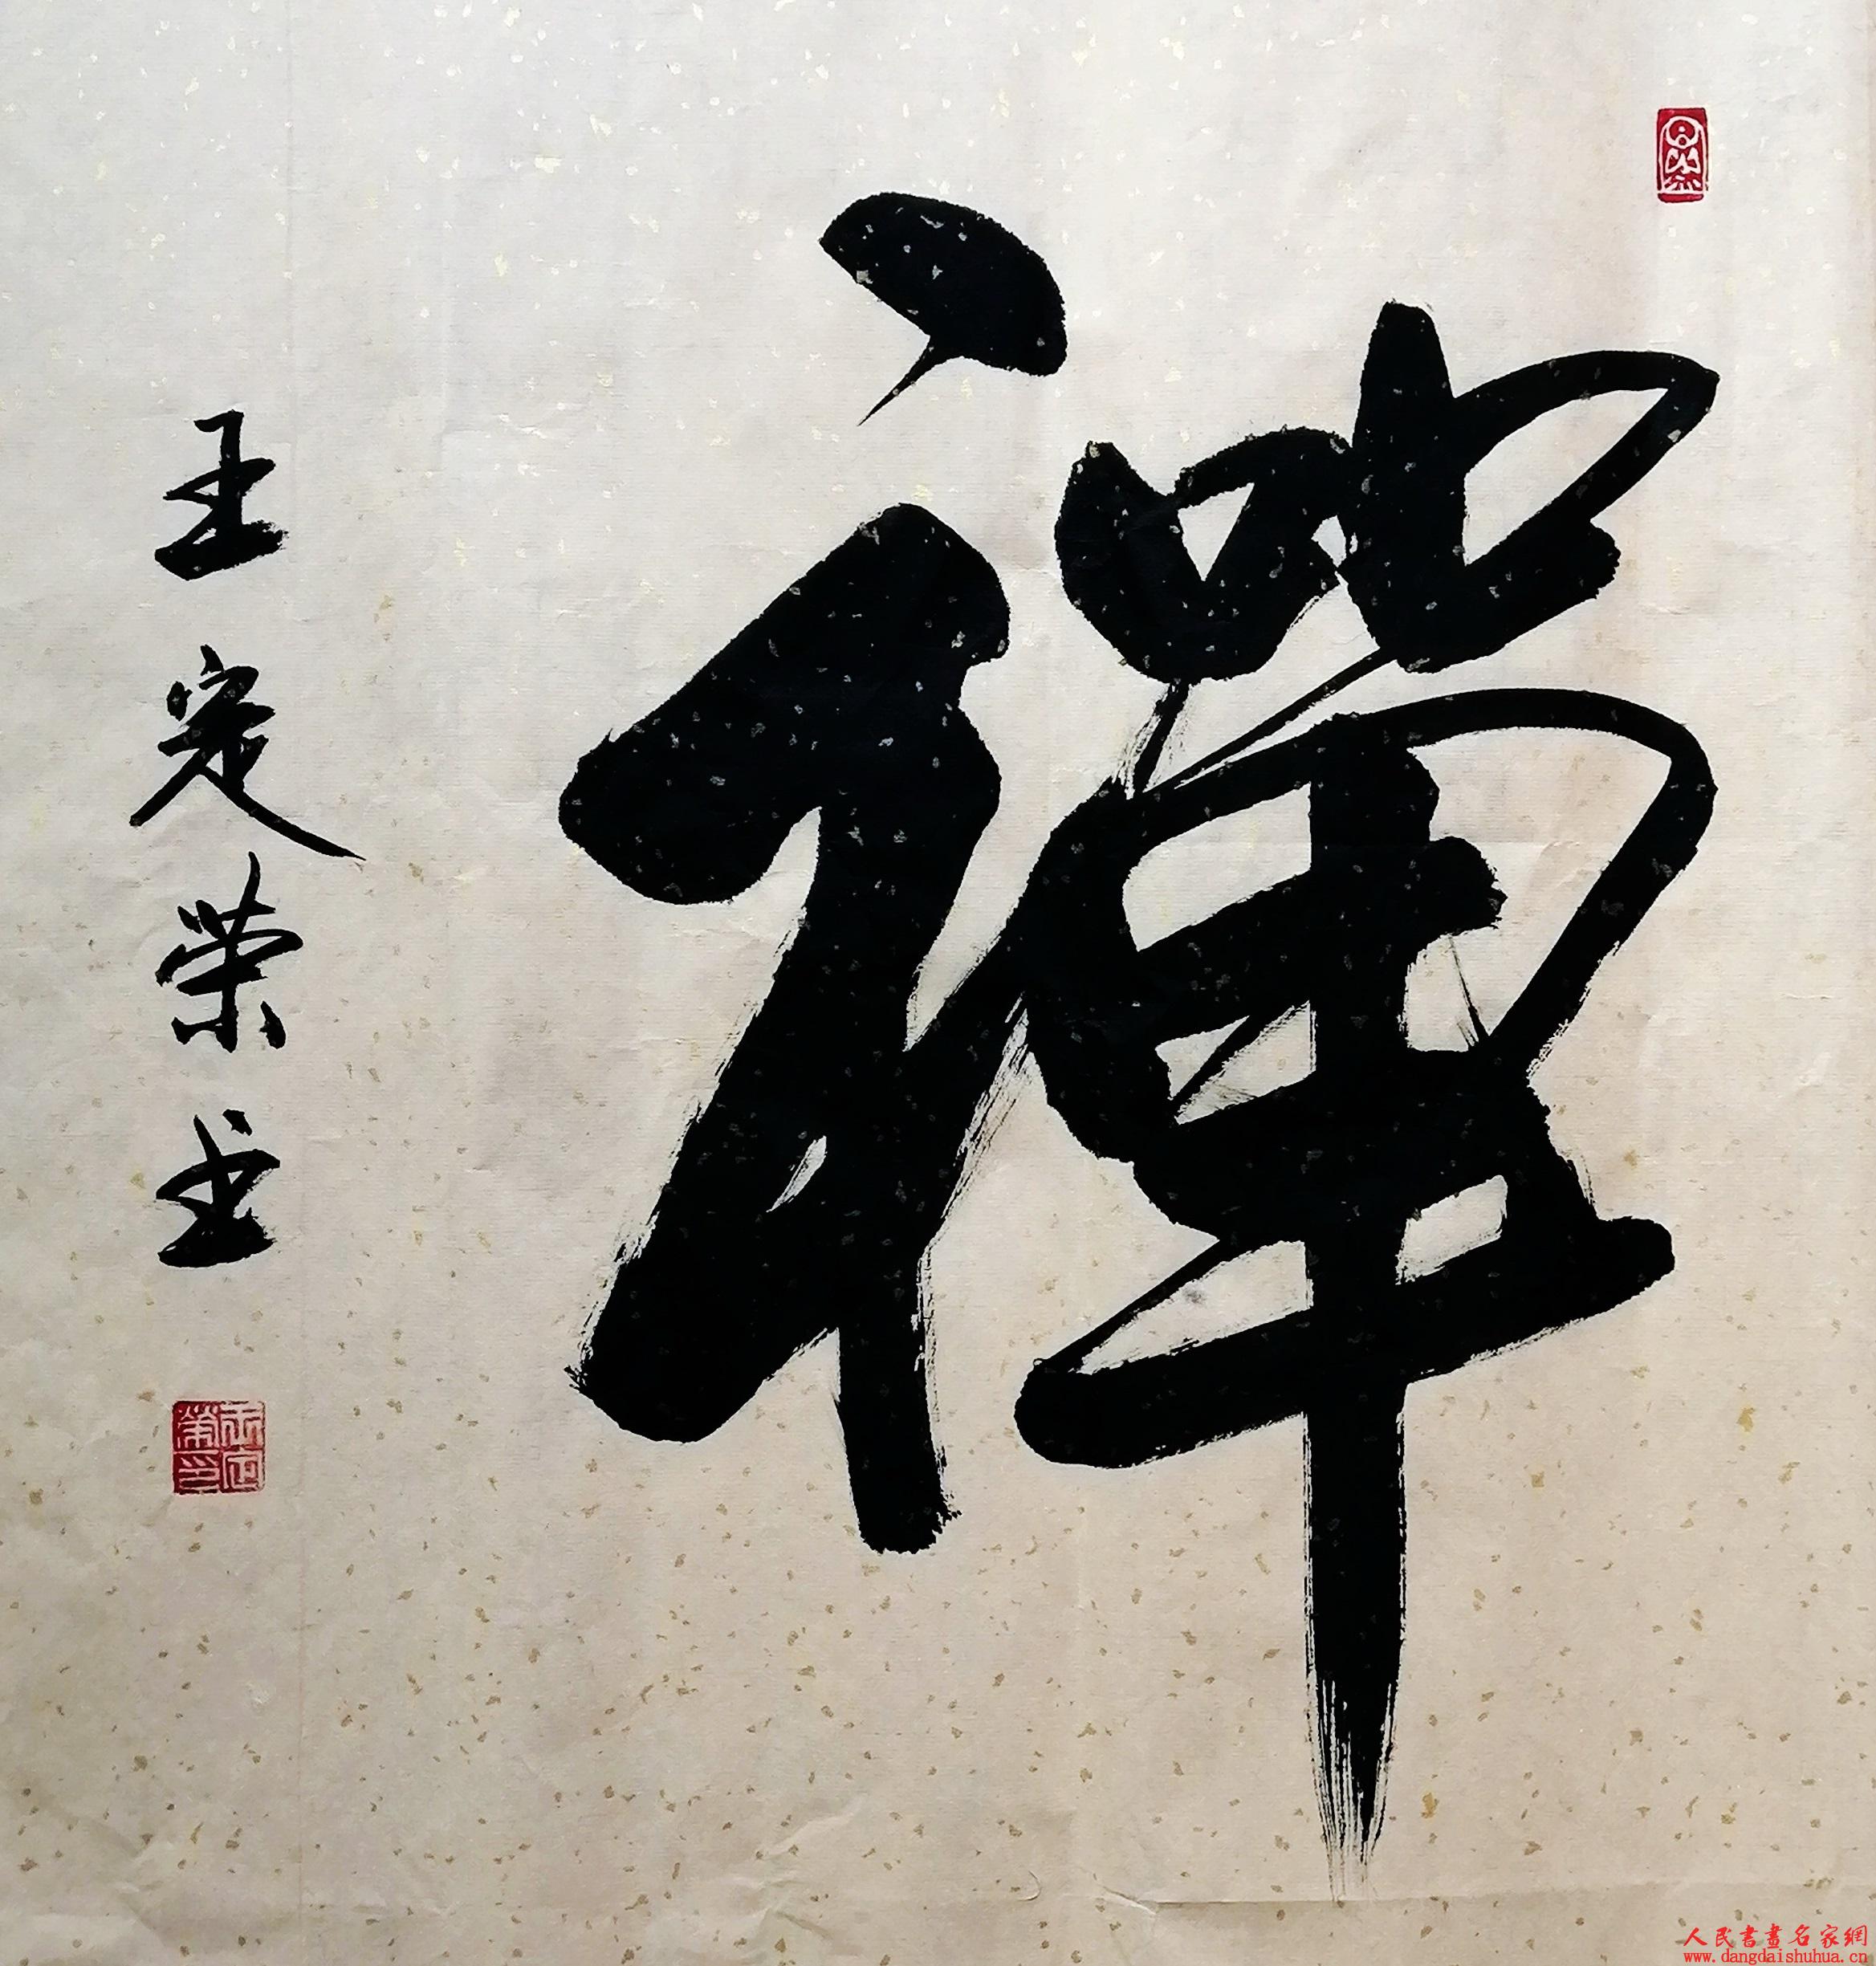 禪
王定榮书
王定
榮印
人民書畫名家網
www.dangdaishuhua.cn